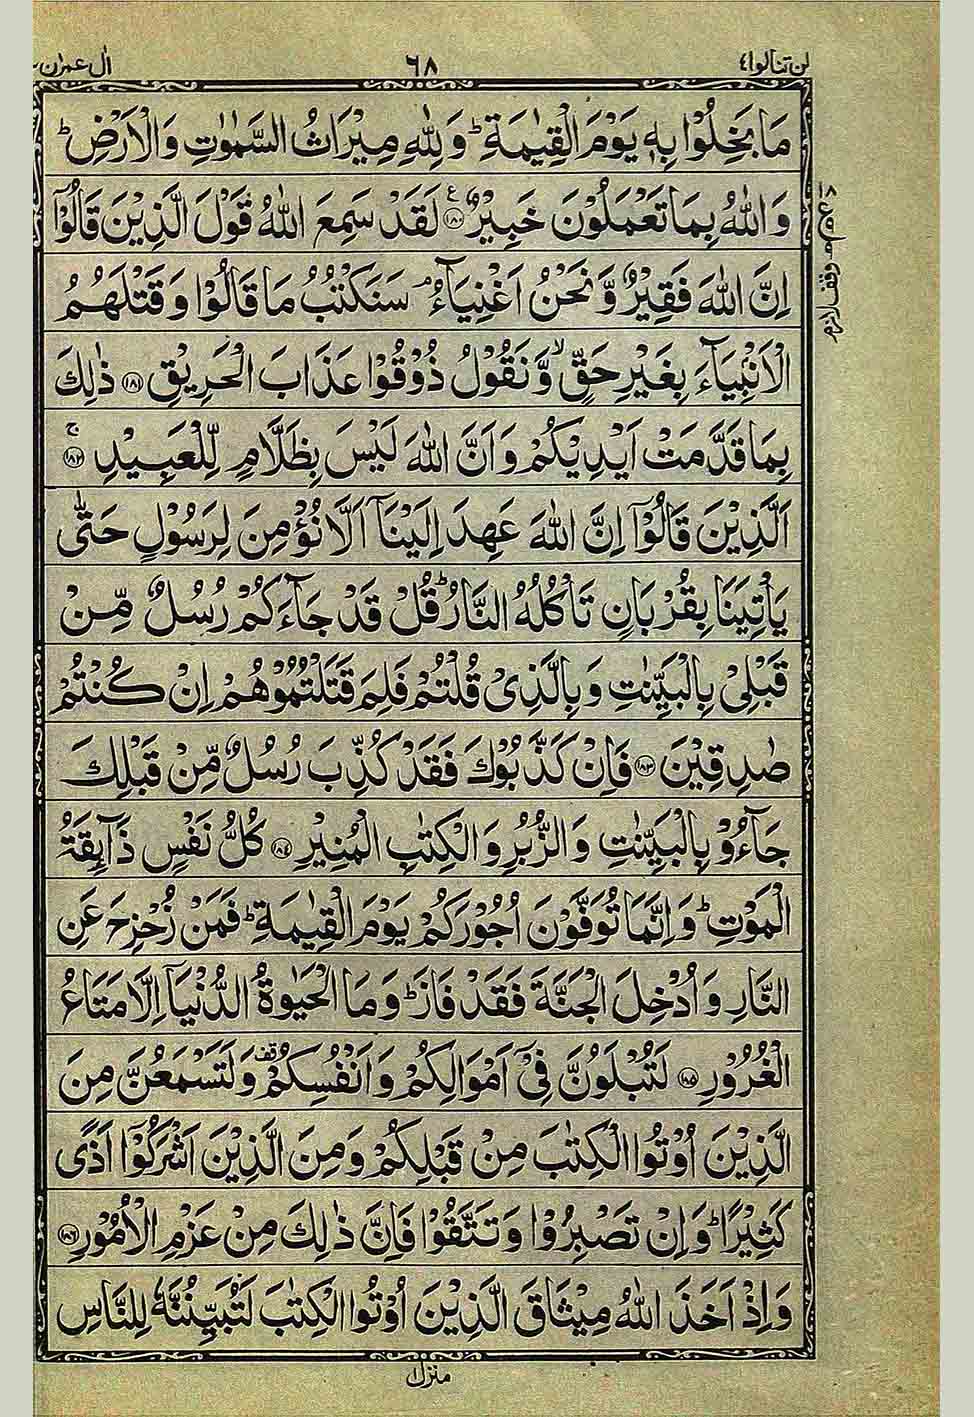 لن تنالوا ٤ ٦٨ اٰل عمرٰن ٣
مَا بَخِلُوۡا بِهٖ يَوۡمَ الۡقِيٰمَةِ ؕ وَ لِلّٰهِ مِيۡرَاثُ السَّمٰوٰتِ وَ الۡاَرۡضِ ؕ
وَ اللّٰهُ بِمَا تَعۡمَلُوۡنَ خَبِيۡرٌ ﴿۱۸۰﴾ ع لَقَدۡ سَمِعَ اللّٰهُ قَوۡلَ الَّذِيۡنَ قَالُوۡۤا
اِنَّ اللّٰهَ فَقِيۡرٌ وَّ نَحۡنُ اَغۡنِيَآءُ ۘ سَنَكۡتُبُ مَا قَالُوۡا وَ قَتۡلَهُمُ
وقف لازم
الۡاَنۡۢبِيَآءَ بِغَيۡرِ حَقٍّ ۙ وَّ نَقُوۡلُ ذُوۡقُوۡا عَذَابَ الۡحَرِيۡقِ ﴿۱۸۱﴾ ذٰلِكَ
بِمَا قَدَّمَتۡ اَيۡدِيۡكُمۡ وَ اَنَّ اللّٰهَ لَيۡسَ بِظَلَّامٍ لِّلۡعَبِيۡدِ ﴿۱۸۲﴾ ۚ
اَلَّذِيۡنَ قَالُوۡۤا اِنَّ اللّٰهَ عَهِدَ اِلَيۡنَاۤ اَلَّا نُؤۡمِنَ لِرَسُوۡلٍ حَتّٰى
يَاۡتِيَنَا بِقُرۡبَانٍ تَاۡكُلُهُ النَّارُ ؕ قُلۡ قَدۡ جَآءَكُمۡ رُسُلٌ مِّنۡ
قَبۡلِىۡ بِالۡبَيِّنٰتِ وَ بِالَّذِىۡ قُلۡتُمۡ فَلِمَ قَتَلۡتُمُوۡهُمۡ اِنۡ كُنۡتُمۡ
صٰدِقِيۡنَ ﴿۱۸۳﴾ فَاِنۡ كَذَّبُوۡكَ فَقَدۡ كُذِّبَ رُسُلٌ مِّنۡ قَبۡلِكَ
جَآءُوۡ بِالۡبَيِّنٰتِ وَ الزُّبُرِ وَ الۡكِتٰبِ الۡمُنِيۡرِ ﴿۱۸۴﴾ كُلُّ نَفۡسٍ ذَآئِقَةُ
الۡمَوۡتِ ؕ وَ اِنَّمَا تُوَفَّوۡنَ اُجُوۡرَكُمۡ يَوۡمَ الۡقِيٰمَةِ ؕ فَمَنۡ زُحۡزِحَ عَنِ
النَّارِ وَ اُدۡخِلَ الۡجَنَّةَ فَقَدۡ فَازَ ؕ وَ مَا الۡحَيٰوةُ الدُّنۡيَاۤ اِلَّا مَتَاعُ
الۡغُرُوۡرِ ﴿۱۸۵﴾ لَتُبۡلَوُنَّ فِىۡۤ اَمۡوَالِكُمۡ وَ اَنۡفُسِكُمۡ قف وَ لَتَسۡمَعُنَّ مِنَ
الَّذِيۡنَ اُوۡتُوا الۡكِتٰبَ مِنۡ قَبۡلِكُمۡ وَ مِنَ الَّذِيۡنَ اَشۡرَكُوۡۤا اَذًى
كَثِيۡرًا ؕ وَ اِنۡ تَصۡبِرُوۡا وَ تَتَّقُوۡا فَاِنَّ ذٰلِكَ مِنۡ عَزۡمِ الۡاُمُوۡرِ ﴿۱۸۶﴾
وَ اِذۡ اَخَذَ اللّٰهُ مِيۡثَاقَ الَّذِيۡنَ اُوۡتُوا الۡكِتٰبَ لَتُبَيِّنُنَّهٗ لِلنَّاسِ
منزل